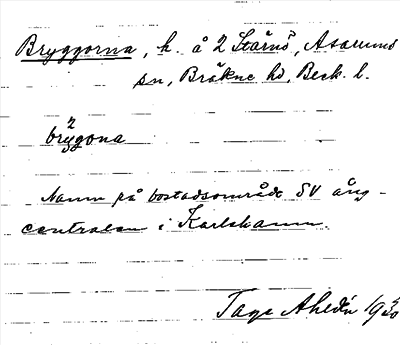 Bryggorna, h. å 2 Stärnö, Asarums
sn, Bräkne hd, Blek. l.
brỳgona
Namn på bostadsområde SV ång-
centralen i Karlshamn.
Tage Ahldén 1930